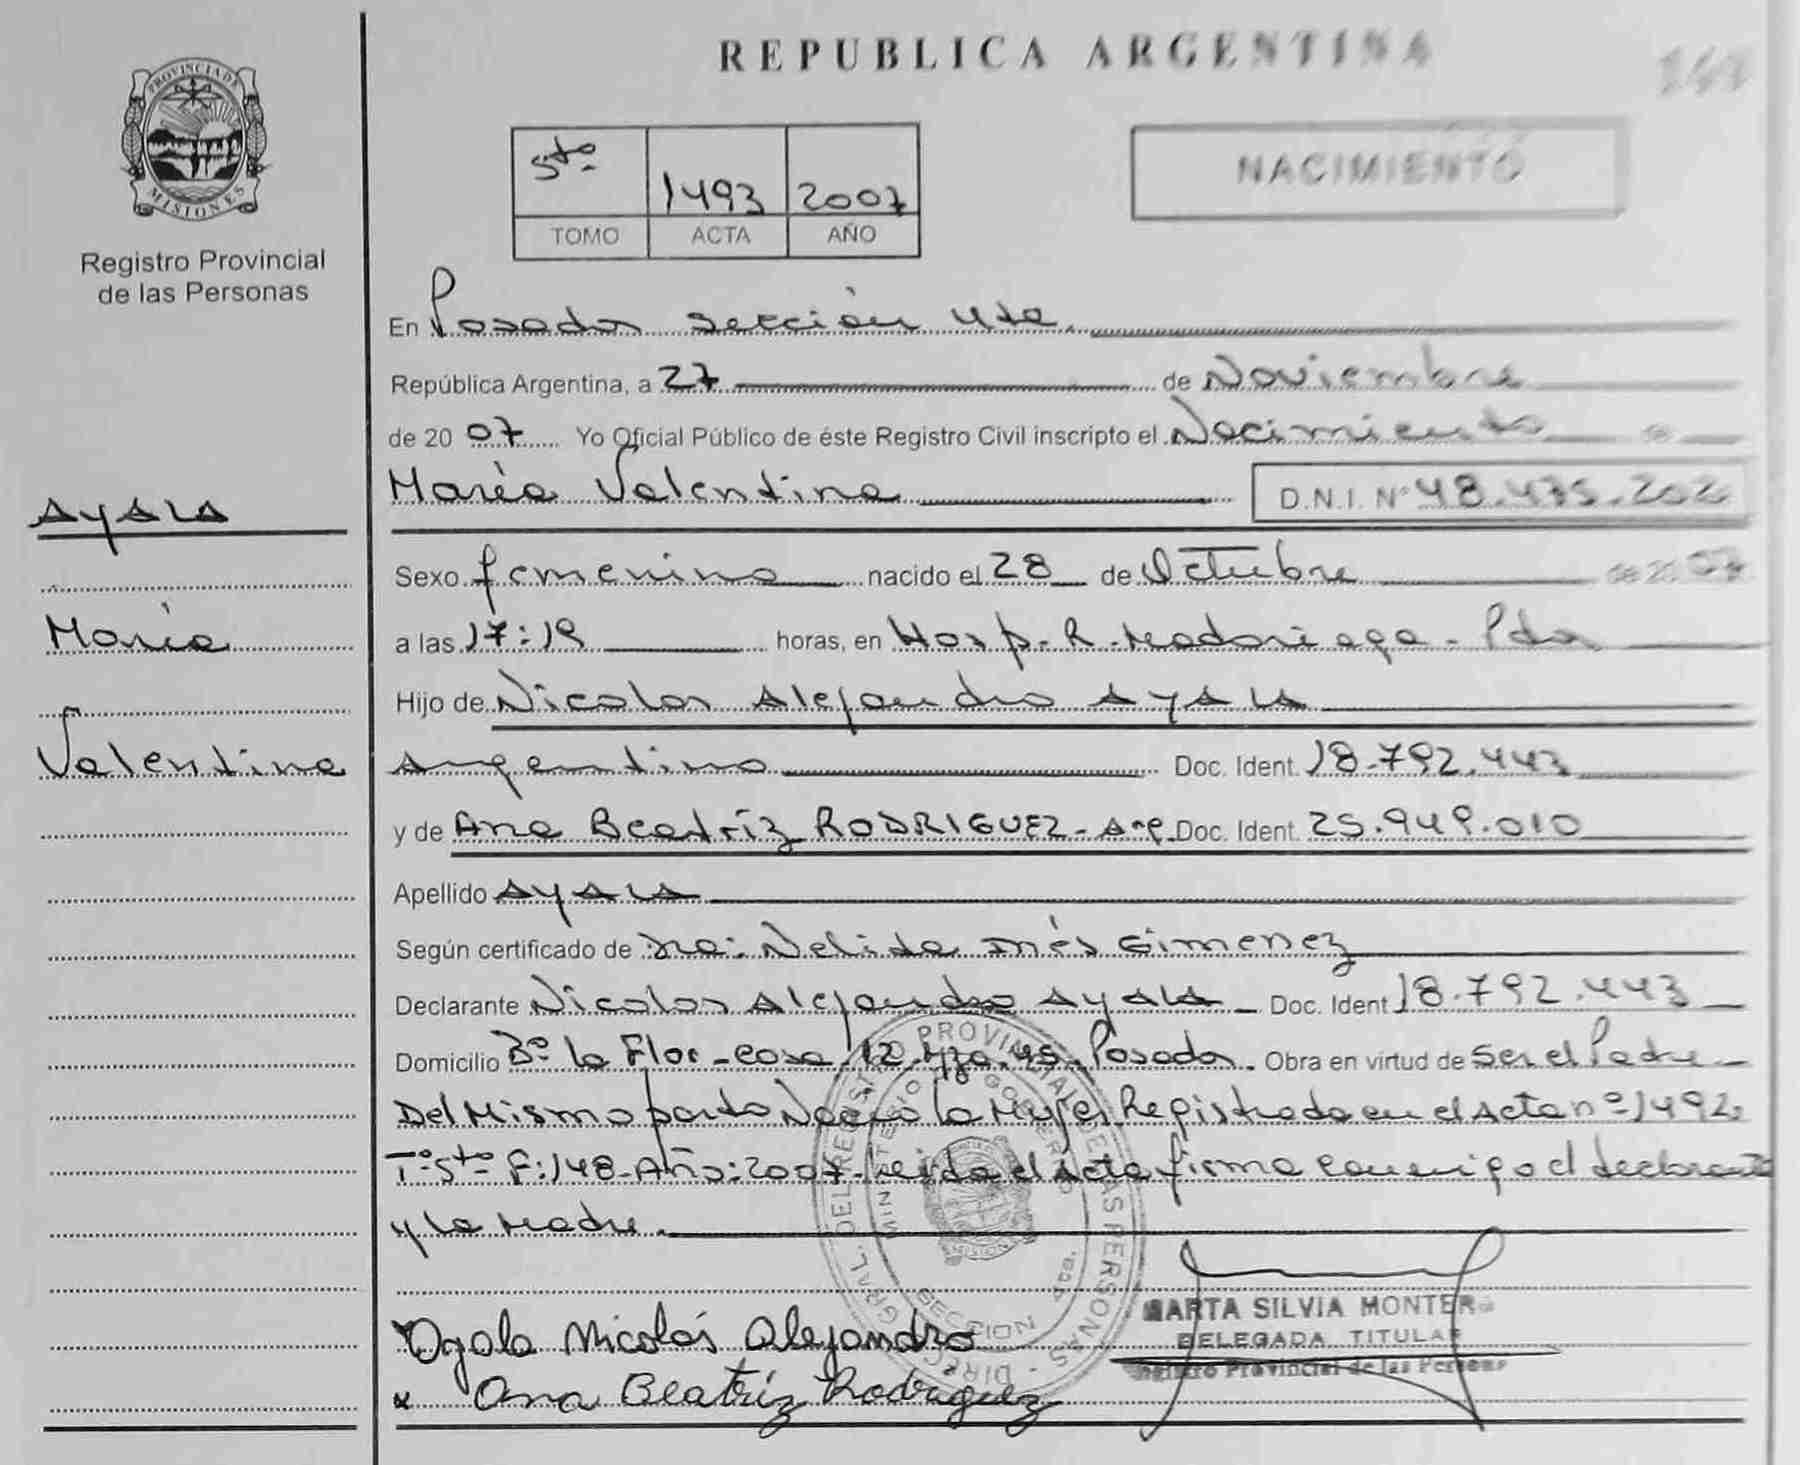 REPUBLICA ARGENTINA
PROVINCIA DE
MISIONES
Registro Provincial
de las Personas
5to 1493 2007
TOMO ACTA AÑO
NACIMIENTO
En Posadas sección 4ta.
República Argentina, a 27 de Noviembre
de 20 07 Yo Oficial Público de éste Registro Civil inscripto el Nacimiento de
María Valentina D.N.I. Nº 48.475.202
AYALA
Sexo femenino nacido el 28 de Octubre de 20 07
María
a las 17:19 horas, en Hosp. R. Madariaga - Pdas
Hijo de Nicolas Alejandro AYALA
Valentina
Argentino Doc. Ident. 18.792.443
y de Ana Beatríz RODRIGUEZ - Arg. Doc. Ident. 25.949.010
Apellido AYALA
Según certificado de Dra: Nelida Inés Gimenez
Declarante Nicolas Alejandro AYALA Doc. Ident. 18.792.443
Domicilio Bº la Flor - casa 12. Mza. 45. Posadas. Obra en virtud de Ser el Padre
Del Mismo parto Nació la Mujer Registrada en el Acta nº 1492,
Tº 5to F: 148 - Año: 2007 - leida el Acta firma conmigo el declarante
y la Madre.
MARTA SILVIA MONTER
DELEGADA TITULAR
Registro Provincial de las Personas
Ayala Nicolás Alejandro
x Ana Beatríz Rodriguez